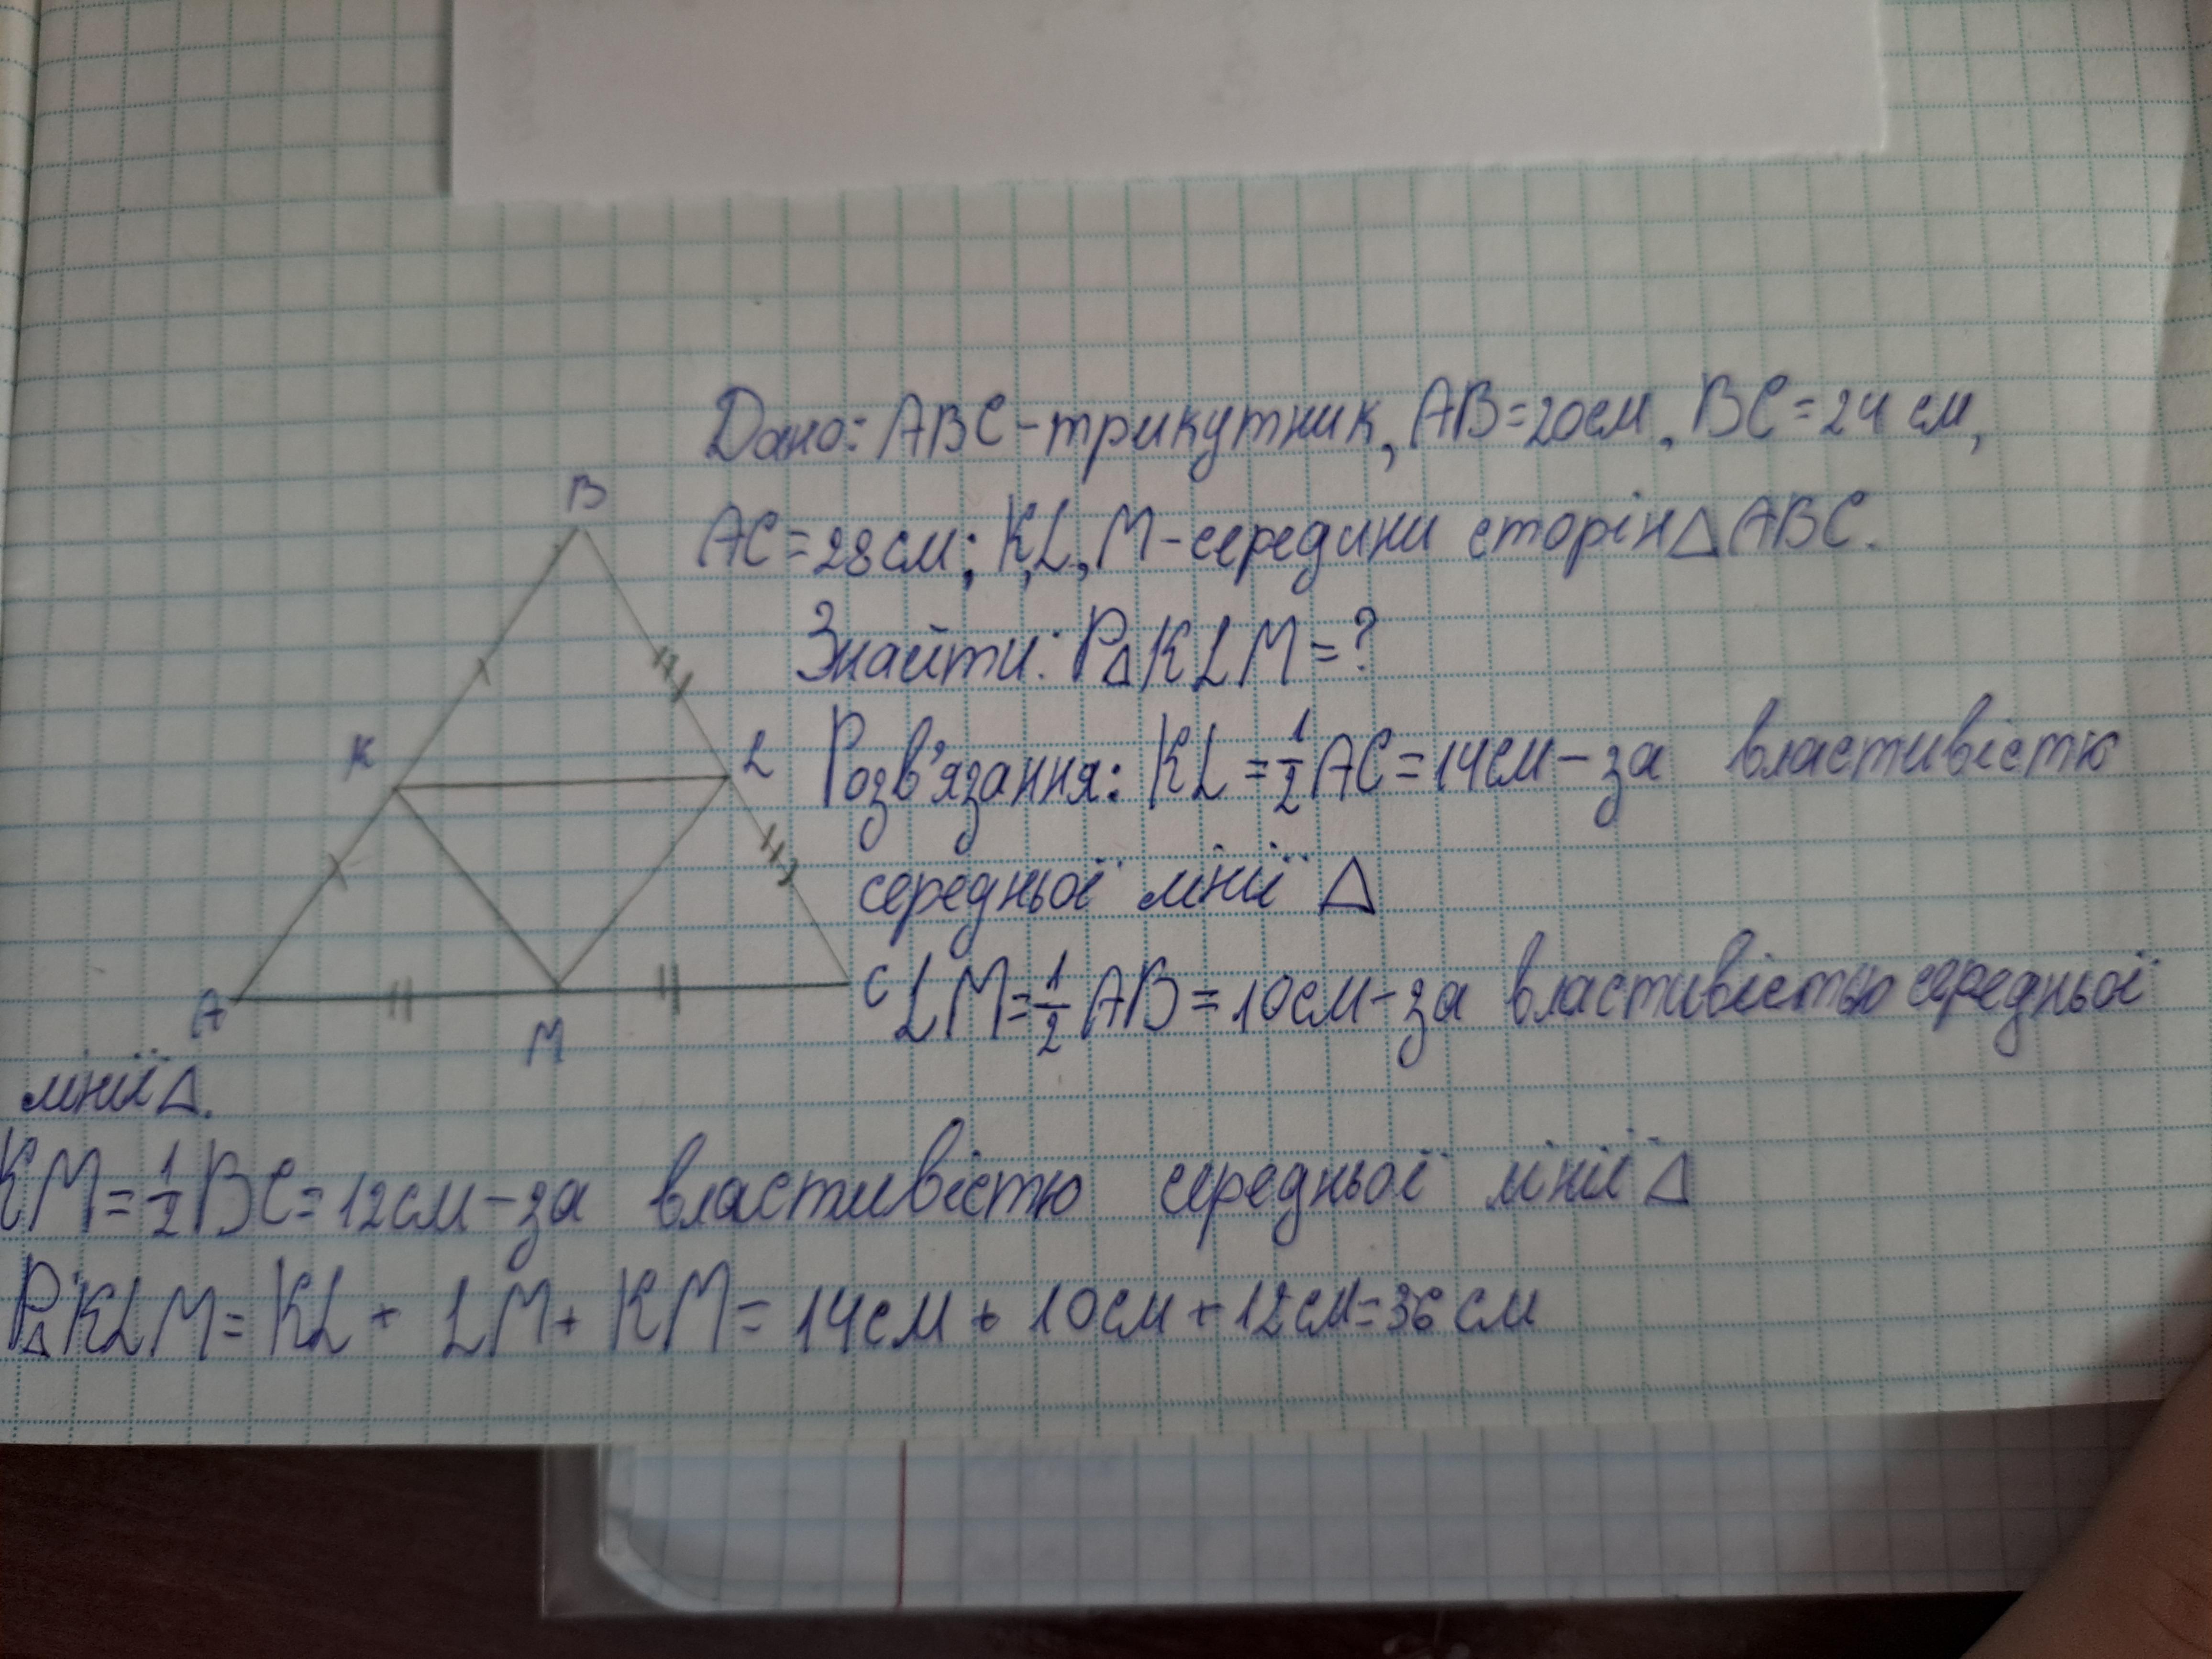 Дано: ABC - трикутник, AB=20см, BC=24 см,
AC=28см; K,L,M - середини сторін △ABC.
Знайти: P△KLM=?
Розв'язання: KL=1/2 AC=14см - за властивістю
середньої лінії △
LM=1/2 AB=10см - за властивістью середньої
лінії△.
KM=1/2 BC=12см - за властивістю середньої лінії △
P△KLM=KL+ LM+ KM=14см+ 10см+12см=36 см
B
K
L
A
M
C